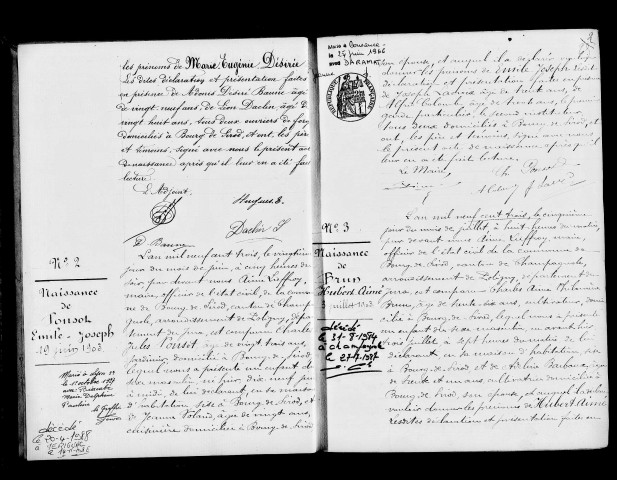 les prénoms de Marie Eugénie Désirée
Les dites déclaration et présentation faites
en présence de Adonis Désiré Baune âgé
de vingt neuf ans, de Léon Daclin âgé de
vingt huit ans, tous deux ouvriers de forge
domiciliés à Bourg de Sirod, et ont, les père
et témoins, signé avec nous le présent acte
de naissance après qu'il leur en a été fait
lecture.
L'Adjoint
Hugues E.
Daclin L
D Baune
N° 2
Naissance
de
Ponsot
Emile-Joseph
19 juin 1903
Marié à
le 11 octobre 1927
avec
Marie Delphine
le Greffier
décédé
le 20-4-1988
à
L'an mil neuf cent trois, le vingtième
jour du mois de juin, à cinq heures du
soir, par devant nous Aimé Luffroy,
maire, officier de l'état civil de la commu-
ne de Bourg de Sirod, canton de Champa-
gnole, arrondissement de Poligny, dépar-
tement du Jura, est comparu Charles
Jules Ponsot, âgé de vingt trois ans,
jardinier, domicilié à Bourg de Sirod,
lequel nous a présenté un enfant du
sexe masculin, né hier dix neuf juin
à midi, de lui déclarant, en sa maison
d'habitation sise à Bourg de Sirod, et
de Jeanne âgée de vingt ans,
cuisinière domiciliée à Bourg de Sirod
3
le 24 juin 1966
avec DARAMAT
RÉPUBLIQUE FRANÇAISE
son épouse, et auquel il a déclaré vouloir
donner les prénoms de Emile Joseph. Les dites
déclaration et présentation faites en présence
de Joseph âgé de trente ans, et de
âgé de trente ans, le premier
garde particulier, le second instituteur
tous deux domiciliés à Bourg de Sirod, et
ont, les père et témoins, signé avec nous
le présent acte de naissance après qu'il
leur en a été fait lecture.
Le Maire,
Ch Ponsot
N° 3
Naissance
de
Brun
Hubert Aimé
juillet 1903
décédé
le 31-8-1984
à Champagnole
L'an mil neuf cent trois, le cinquième
jour du mois de juillet, à huit heures du matin,
par devant nous Aimé Luffroy, maire,
officier de l'état civil de la commune de
Bourg de Sirod, canton de Champagnole,
arrondissement de Poligny, département du
Jura, est comparu Charles Aimé
Brun, âgé de trente six ans, cultivateur, domi-
cilié à Bourg de Sirod, lequel nous a présenté
un enfant du sexe masculin, né
juillet à sept heures du matin de lui
déclarant, en sa maison d'habitation, sise
à Bourg de Sirod et de
de trente et un ans cultivatrice domiciliée à
Bourg de Sirod, son épouse, et auquel il a déclaré
vouloir donner les prénoms de Hubert Aimé
Les dites déclaration et présentation faites en